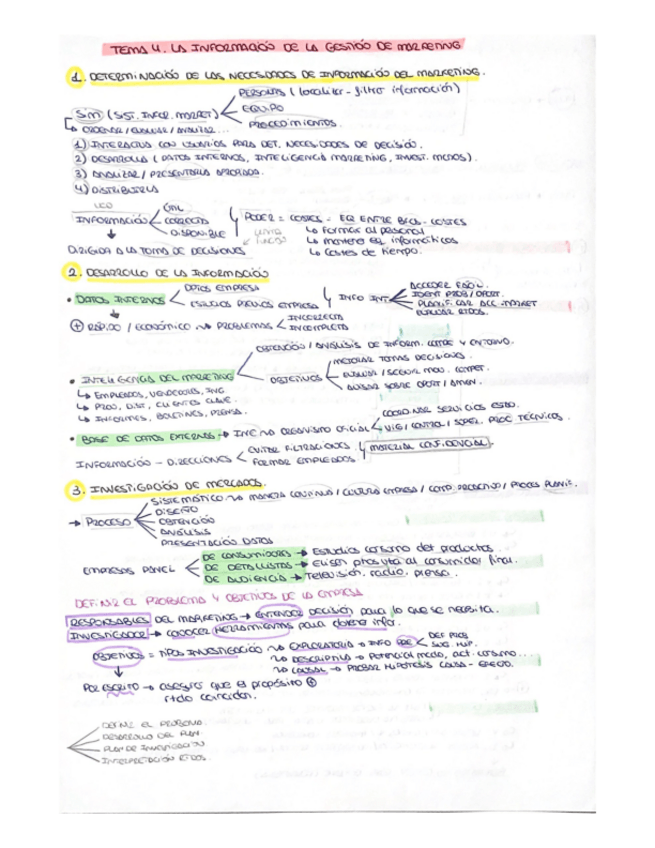 TEMA 4. LA INFORMACIÓ DE LA GESTIÓ DE MARKETING
1. DETERMINACIÓ DE LAS NECESIDADES DE INFORMACIÓ DEL MARKETING.
PERSONAS (localitar - filtro información)
SIM (SIST. INFOR. MARKET)
EQUIPO
PROCEDIMIENTOS.
ORDENAR / EVALUAR / ANALIZAR...
1) INTERACTUA CON USUARIOS PARA DET. NECESIDADES DE DECISIÓ.
2) DESARROLLA (DATOS INTERNOS, INTELIGENCIA MARKETING, INVEST. MCDOS).
3) ANALIZAR / PRESENTARLA
4) DISTRIBUIRLA
ÚTIL
INFORMACIÓ
CORRECTA
DISPONIBLE
PODER = COSTES - EQ ENTRE BFCOS - COSTES
Formar al personal
mantener eq informáticos
Costes de tiempo.
DIRIGIDA A LA TOMA DE DECISIONES
2. DESARROLLO DE LA INFORMACIÓ
• DATOS INTERNOS
DATOS EMPRESA
ESTUDIOS PREVIOS EMPRESA
INFO INT
ACCEDER RÁPID.
IDENT PROB / OPORT.
PLANIFICAR ACC. MARKET
EVALUAR RTDOS.
+ RÁPIDO / ECONÓMICO no PROBLEMAS
INCORRECTA
INCOMPLETA
OBTENCIÓ / ANÁLISIS DE INFORM. COMPE Y ENTORNO.
• INTELIGENCIA DEL MARKETING
OBJETIVOS
MEJORAR TOMAS DECISIONES.
EVALUAR / SEGUIR MOV. COMPET.
AVISAR SOBRE OPORT / AMEN.
EMPLEADOS, VENDEDORES, ING.
PROV, DIST, CLIENTES CLAVE.
INFORMES, BOLETINES, PRENSA.
• BASE DE DATOS EXTERNAS → INE no ORGANISMO OFICIAL
COORDINAR SERVICIOS ESTAD.
VIG / CONTROL / SUPER. PROC TÉCNICOS.
INFORMACIÓ - DIRECCIONES
EVITAR FILTRACIONES
FORMAR EMPLEADOS
MATERIAL CONFIDENCIAL
3. INVESTIGACIÓ DE MERCADOS.
→ PROCESO
SISTEMÁTICO no MANERA CONTINUA / CULTURA EMPRESA /
DISEÑO
OBTENCIÓ
ANÁLISIS
PRESENTACIÓ DATOS
EMPRESAS PANEL
DE CONSUMIDORES → Estudios consumo det productos.
DE DETALLISTAS →
DE AUDIENCIA → Televisión, radio, prensa.
DEFINIR EL PROBLEMA Y OBJETIVOS DE LA EMPRESA
RESPONSABLES DEL MARKETING → ENTENDER DECISIÓN para lo que se necesita.
INVESTIGADOR → CONOCER HERRAMIENTAS para obtener infor.
OBJETIVOS = TIPOS INVESTIGACIÓ no EXPLORATORIA → INFO PRE
DEF PROB
SUG HIP.
no DESCRIPTIVA → Potencial mcdo, act. consumo...
no CAUSAL → PROBAR HIPÓTESIS CAUSA - EFECTO.
POR ESCRITO → asegura que el propósito +
rtdo coincidan.
DEFINIR EL PROBLEMA.
DESARROLLO DEL PLAN.
PLAN DE INVESTIGACIÓN
INTERPRETACIÓN RTDOS.